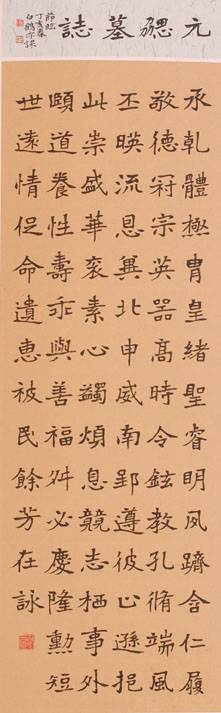 元勰墓誌
節臨
丁亥春
承乾體極胄皇緒聖睿明夙躋含仁履
敬德冠宗英器高時令鉉教孔脩端風
丕暎流恩冀北申威南郢遵彼止遜挹
此崇盛華衮素心蠲煩息競志栖事外
頤道養性壽乖與善福舛必慶隆勳短
世遠情促命遺惠被民餘芳在詠